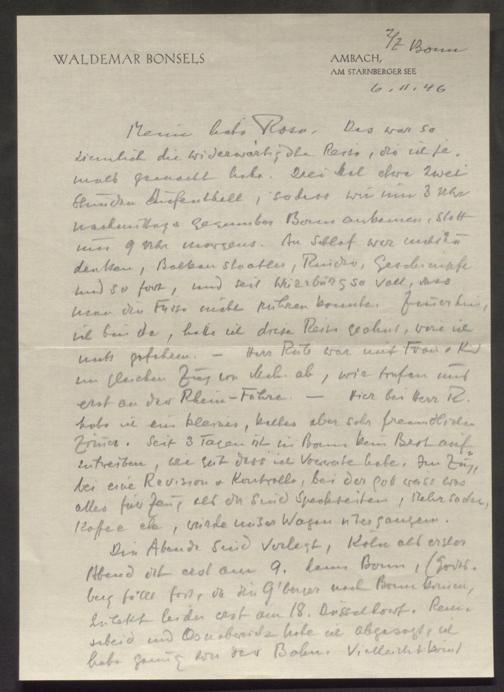 z/Z Bonn
WALDEMAR BONSELS
AMBACH,
AM STARNBERGER SEE
6. 11. 46
Meine liebe Rose. Das war so
ziemlich die widerwärtigste Reise, die ich je-
mals gemacht habe. Drei Mal etwa zwei
Stunden Aufenthalt, sodass wir um 3 Uhr
nachmittags gegenüber Bonn ankamen, statt
um 9 Uhr morgens. An Schlaf war nicht zu
denken, Balkanstaatler, Kinder, Geschimpfe
und so fort, und seit Würzburg so voll, dass
man die Füsse nicht rühren konnte. Immerhin,
ich bin da, hätte ich diese Reise geahnt, wäre ich
nicht gefahren. — Herr R. war mit Frau + Kind
im gleichen Zug von ab, wir trafen uns
erst an der Rhein-Fähre. — Hier bei Herr R.
habe ich ein kleines, kaltes aber sehr freundliches
Zimmer. Seit 3 Tagen ist in Bonn kein Brot auf-
zutreiben, wie gut dass ich Vorräte habe. Im Zug,
bei eine Revision + Kontrolle, bei der gob weiss was
alles für Zeug als da sind Speckseiten, Mehlsäcke,
Kaffee etc, wurde unser Wagen übergangen.
Die Abende sind verlegt, Köln als erster
Abend ist erst am 9. dann Bonn, (Godes-
berg fällt fort, da die G'berger nach Bonn kommen,
zuletzt leider erst am 18. Düsseldorf. Rem-
scheid und Osnabrück habe ich abgesagt, ich
habe genug von der Bahn. Vielleicht kommt